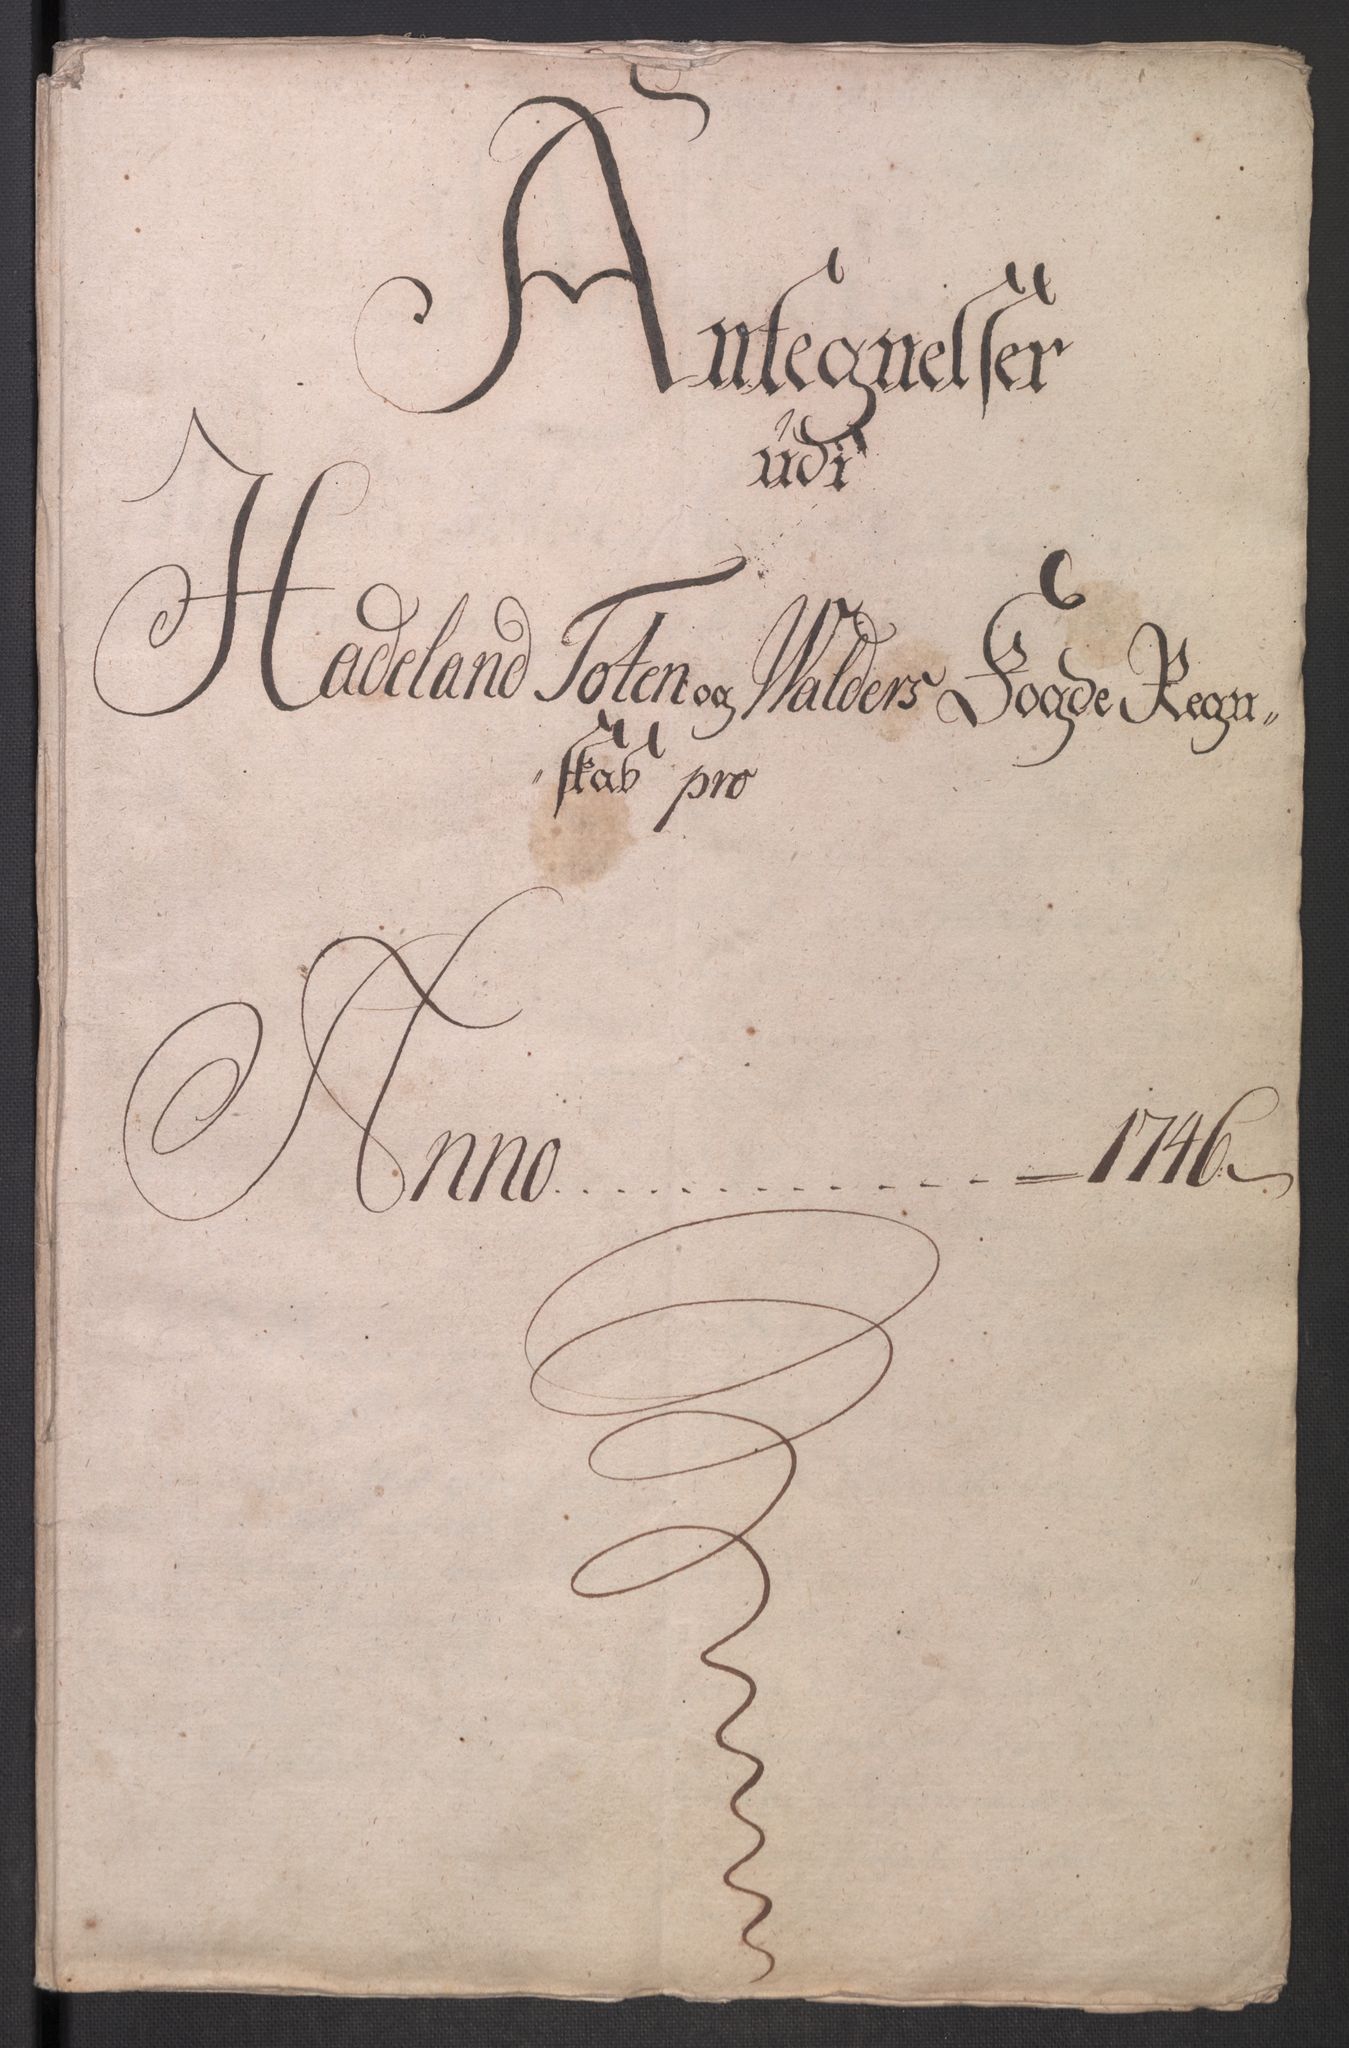 Antegnelser
udi
Hadeland Toten og Walders Fogde Regn„
„skab pro
Anno . . . . . . . . . . . . . . = 1746.